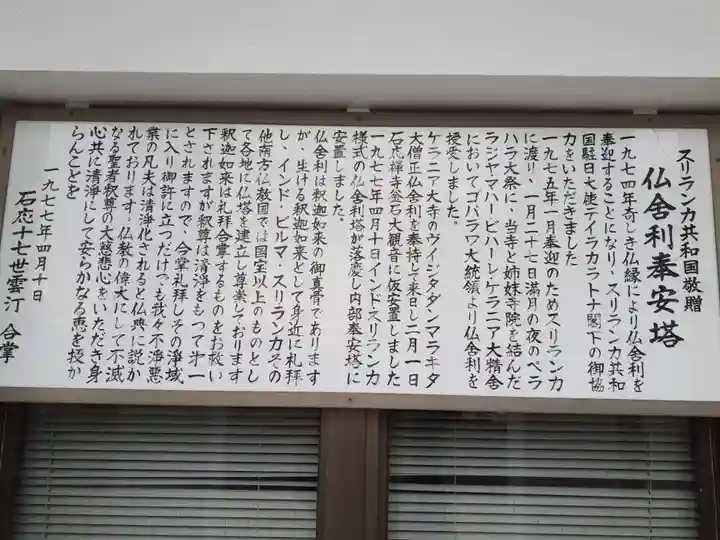 スリランカ共和国敬贈
仏舎利奉安塔
一九七四年奇しき仏縁により仏舎利を
奉迎することになり、スリランカ共和
国駐日大使テイラカラトナ閣下の御協
力をいただきました
一九七五年一月奉迎のためスリランカ
に渡り、一月二十七日満月の夜のペラ
ハラ大祭に、当寺と姉妹寺院を結んだ
ラジャマハービハーレ・ケラニア大精舎
においてゴパラワ大統領より仏舎利を
授受しました。
ケラニア大寺のヴィジタダンマラキタ
大僧正仏舎利を奉持して来日し二月一日
石応禅寺釜石大観音に仮安置しました
一九七七年四月十日インドスリランカ
様式の仏舎利塔が落慶し内部奉安塔に
安置しました。
仏舎利は釈迦如来の御真骨であります
が、生ける釈迦如来として身近に礼拝
し、インド・ビルマ・スリランカその
他南方仏教国では国宝以上のものとし
て各地に仏塔を建立し尊崇しております
釈迦如来は礼拝合掌するものをお救い
下されますが釈尊は清浄をもつて第一
とされますので、合掌礼拝しその浄域
に入り御許に立つだけでも我々不浄悪
業の凡夫は清浄化されると仏典に説か
れております。仏教の偉大にして不滅
なる聖者釈尊の大慈悲心をいただき身
心共に清浄にして安らかなる恵を授か
らんことを
一九七七年四月十日
石応十七世雲汀 合掌